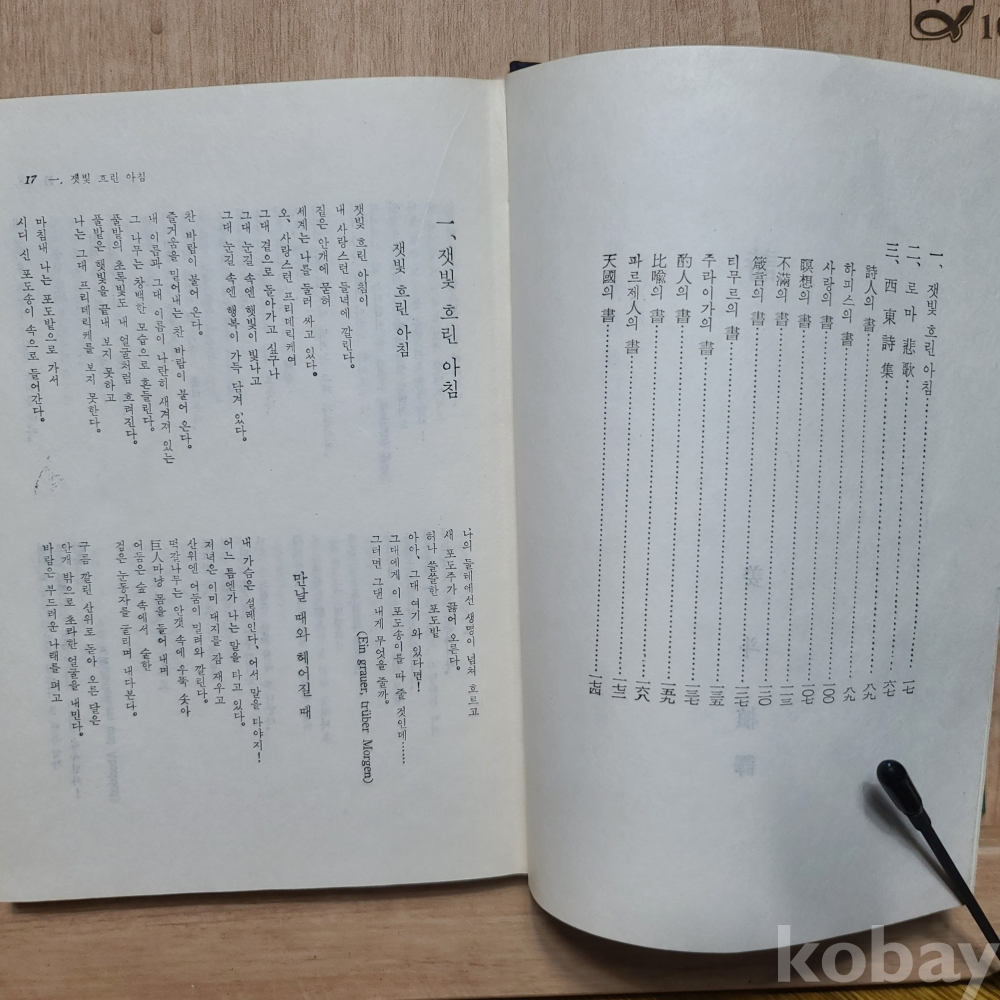 一、잿빛 흐린 아침 一七
二、로마 悲歌 六七
三、西東詩集 八九
詩人의 書 八九
하피스의 書 八九
사랑의 書 一〇〇
瞑想의 書 一〇七
不滿의 書 一一三
箴言의 書 一二〇
티무르의 書 一二七
주라이카의 書 一三五
酌人의 書 一三七
比喩의 書 一五九
파르제人의 書 一六八
天國의 書 一七四
17 一. 잿빛 흐린 아침
一、잿빛 흐린 아침
잿빛 흐린 아침
잿빛 흐린 아침이
내 사랑스런 들녘에 깔린다.
짙은 안개에 묻혀
세계는 나를 둘러 싸고 있다.
오, 사랑스런 프리데릭케여
그대 곁으로 돌아가고 싶구나
그대 눈길 속엔 햇빛이 빛나고
그대 눈길 속엔 행복이 가득 담겨 있다.
찬 바람이 불어 온다.
즐거움을 밀어내는 찬 바람이 불어 온다.
내 이름과 그대 이름이 나란히 새겨져 있는
그 나무는 창백한 모습으로 흔들린다.
풀밭의 초록빛도 내 얼굴처럼 흐려진다.
풀밭은 햇빛을 끝내 보지 못하고
나는 그대 프리데릭케를 보지 못한다.
마침내 나는 포도밭으로 가서
시디 신 포도송이 속으로 들어간다.
나의 둘레에선 생명이 넘쳐 흐르고
새 포도주가 끓어 오른다.
허나 쓸쓸한 포도밭
아아, 그대 여기 와 있다면!
그대에게 이 포도송이를 따 줄 것인데……
그러면 그댄 내게 무엇을 줄까.
(Ein grauer, trüber Morgen)
만날 때와 헤어질 때
내 가슴은 설레인다, 어서 말을 타야지!
어느 틈엔가 나는 말을 타고 있다.
저녁은 이미 대지를 잠 재우고
산위엔 어둠이 밀려와 깔린다.
떡갈나무는 안갯 속에 우뚝 솟아
巨人마냥 몸을 들어 내며
어둠은 숲 속에서 숱한
검은 눈동자를 굴리며 내다본다.
구름 깔린 산위로 돋아 오른 달은
안개 밖으로 초라한 얼굴을 내민다.
바람은 부드러운 나래를 펴고
kobay